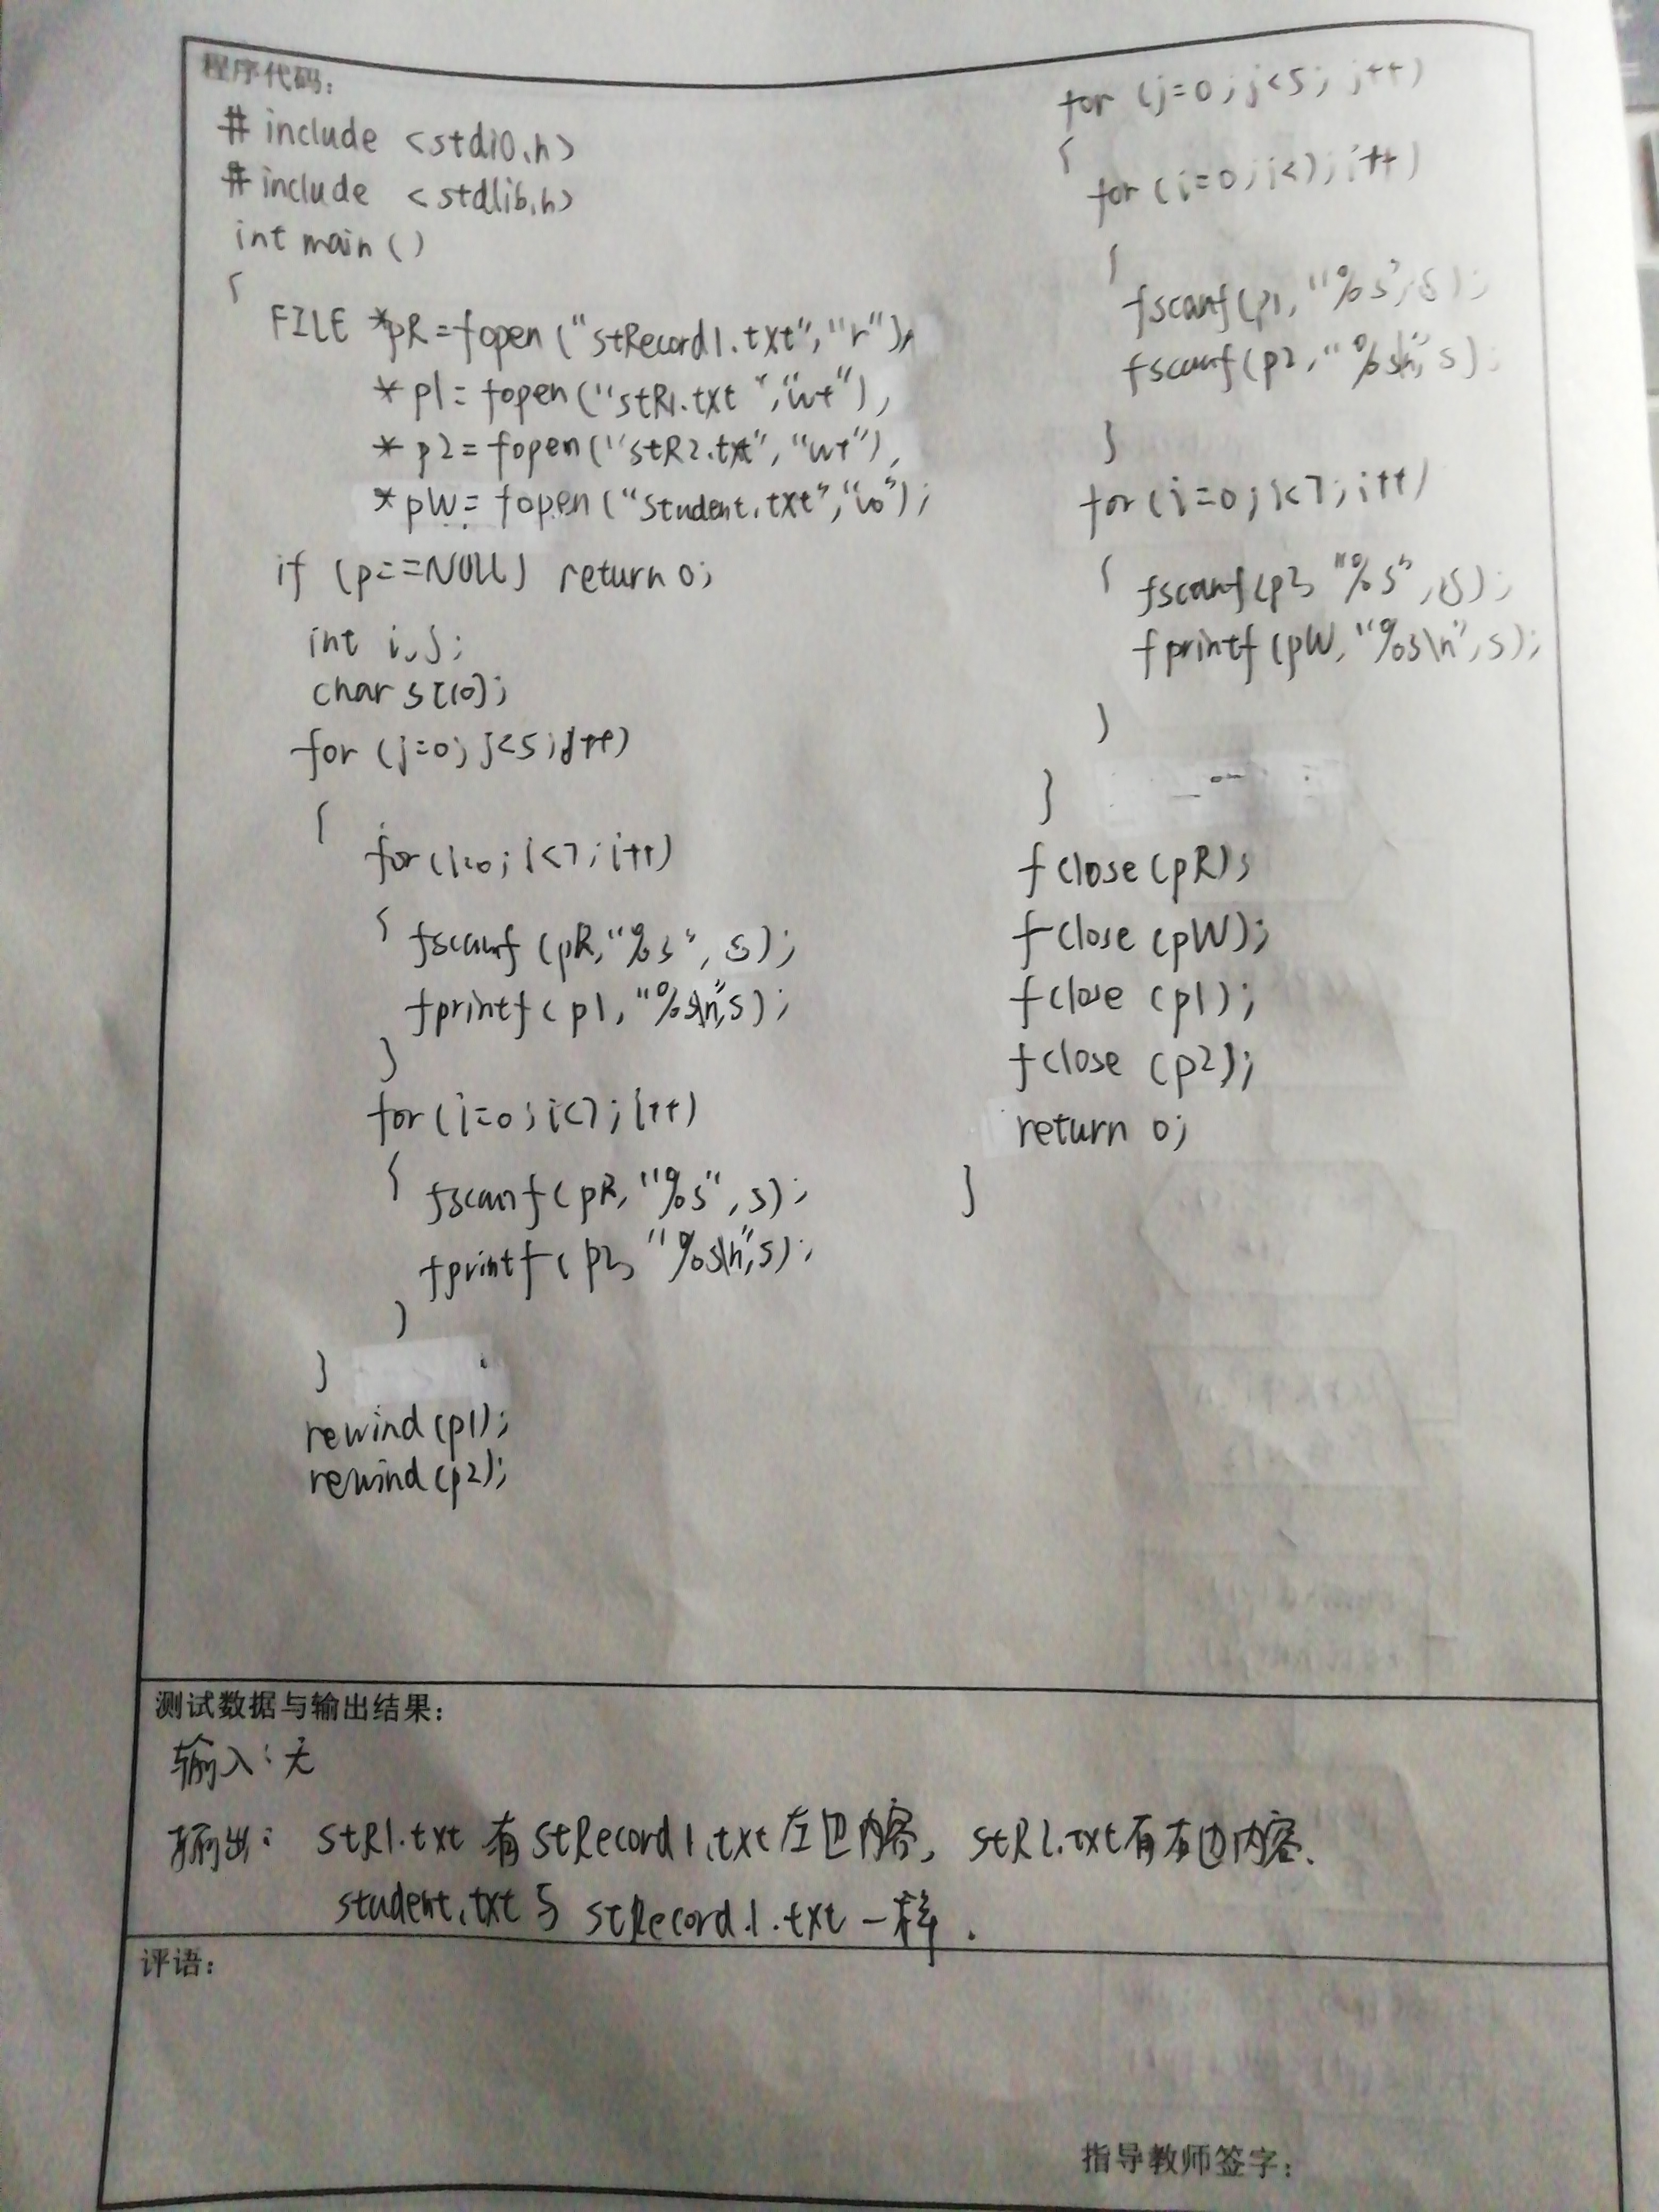 程序代码：
# include <stdio.h>
# include <stdlib.h>
int main ()
{
FILE *pR=fopen ("stRecord1.txt","r"),
* p1= fopen("stR1.txt","w+"),
* p2= fopen("stR2.txt","w+"),
*pW= fopen ("student.txt","w");
if (p==NULL) return 0;
int i,j;
char s[10];
for (j=0; j<5;j++)
{
for(i=0; i<7; i++)
{ fscanf (pR,"%s", s);
fprintf( p1, "%s\n",s);
}
for (i=0;i<7; i++)
{ fscanf( pR, "%s", s);
fprintf( p2, "%s\n",s);
}
}
rewind(p1);
rewind(p2);
for (j=0;j<5; j++)
{
for (i=0;i<7;i++)
{
fscanf(p1, "%s",s);
fscanf(p2, "%s\n",s);
}
for(i=0;i<7;i++)
{ fscanf(p2, "%s",s);
fprintf(pW,"%s\n",s);
}
}
fclose(pR);
fclose (pW);
fclose (p1);
fclose (p2);
return 0;
}
测试数据与输出结果：
输入：无
输出： stR1.txt 有 stRecord1.txt 左边内容, stR2.txt有右边内容.
student.txt与 stRecord.1.txt一样.
评语：
指导教师签字：